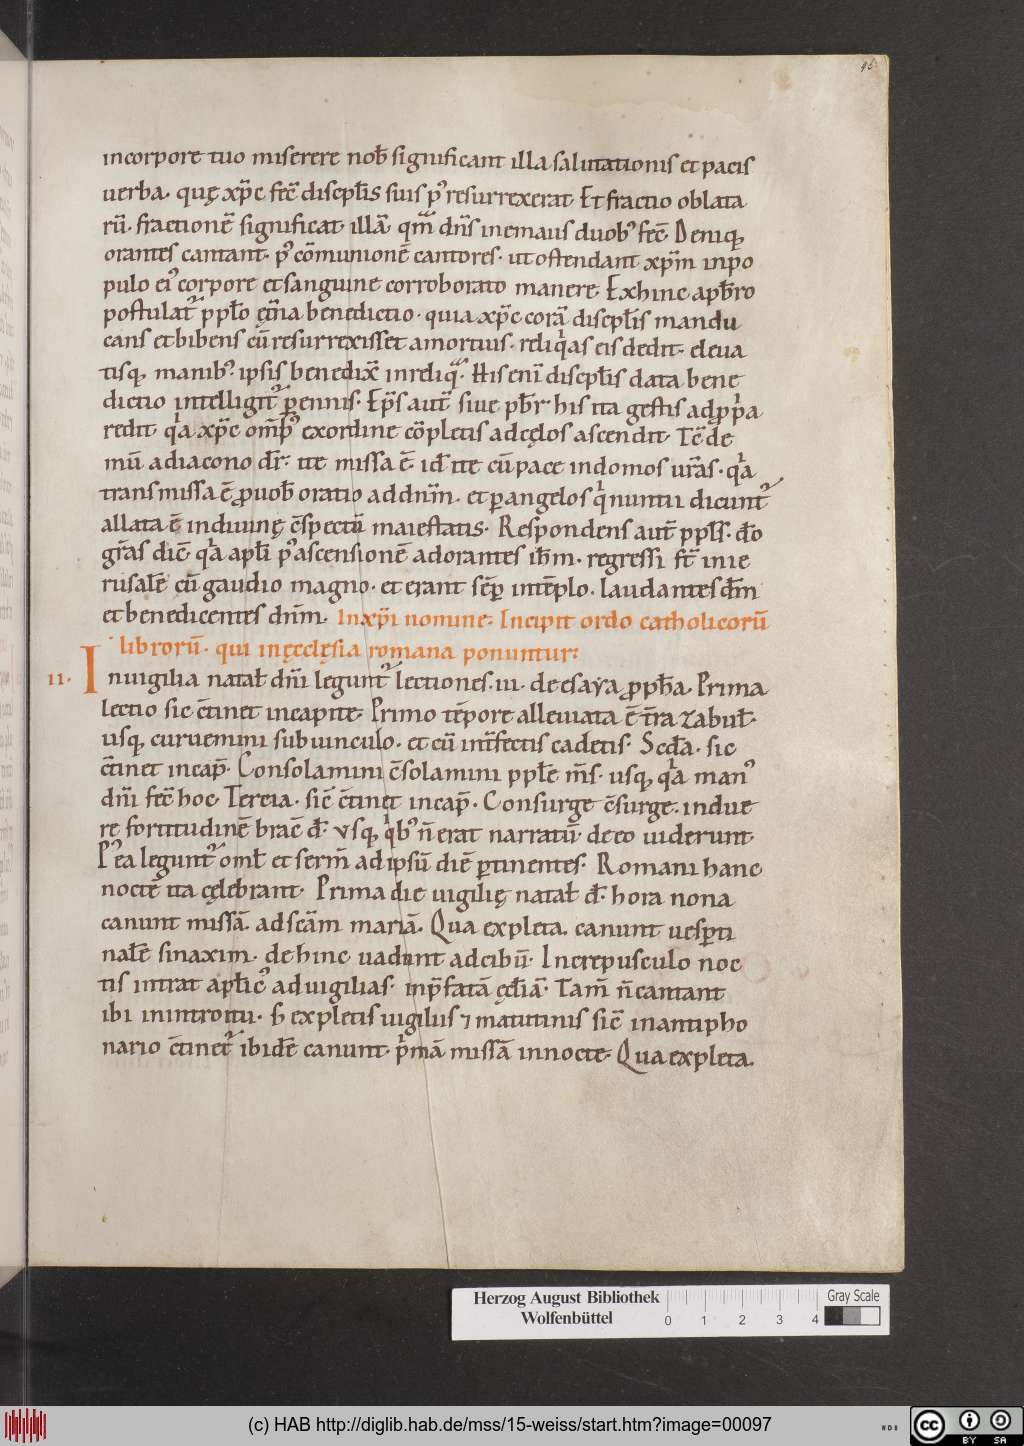 45
incorpore tuo miserere nob̄ significant illa salutationis et pacis
uerba. quę xp̄c fec̄ discipl̄is suis p᾽ resurrexerat. Et fractio oblata
rū. fractionē significat illā. qm̄ dn̄s inemaus duob᾽ fec̄. Deniq;
orantes cantant. p᾽ cōmunionē cantores. ut ostendant xp̄m inpo
pulo ei᾽ corpore et sanguine corroborato manere. Exhinc apb̄ro
postulat᾽ ppl̄o ęm̄a benedictio. quia xp̄c corā discipl̄is mandu
cans et bibens cū resurrexisset amortuis. reliq̓as eis dedit. eleua
tisq; manib᾽ ipsis benedix̄ inreliq̄. His enī discipl̄is data bene
dictio intelligit᾽ ꝑennis. Ep̄s aut̄ siue pb̄r his ita gestis adꝓp̓a
redit. q̓a xp̄c om̄p᾽ exordine cōpletis adcęlos ascendit. Tc̄ de
mū adiacono dr̄. ite missa ē. id̄ ite cū pace indomos ur̄as. q̓a
transmissa ē ꝓuob̄ oratio addn̄m. et ꝑangelos q̓ nuntii dicunt᾽
allata ē indiuinę c̄spectū maiestatis. Respondens aut̄ ppl̄s. d̄o
gr̄as dic̄. q̓a apl̄i p᾽ ascensionē adorantes ih̄m. regressi st̄ inie
rusalē cū gaudio magno. et erant sēꝑ intēplo. laudantes d̄m
et benedicentes dn̄m. Inxp̄i nomine. Incipit ordo catholicorū
librorū. qui inęcclęsia romana ponuntur.
II. Inuigilia natal̄ dn̄i legunt᾽ lectiones. iii. de esaẏa ꝓph̄a. Prima
lectio sic c̄tinet incapite. Primo tēpore alleuiata ē t̄ra zabul̄.
usq; curuemini sub uinculo. et cū int̄fectis cadetis. Scd̄a. sic
c̄tinet incap̄. Consolamini c̄solamini ppl̄e m̄s. usq; q̓a man᾽
dn̄i fec̄ hoc. Tercia. sic̄ c̄tinet incap̄. Consurge c̄surge. indue
re fortitudinē brac̄ d̄. vsq; q̓b᾽ n̄ erat narratū. de eo uiderunt.
P᾽ ea legunt᾽ oml̄ et serm̄ ad ipsū diē ꝑtinentes. Romani hanc
noctē ita cęlebrant. Prima die uigilię natal̄ d̄. hora nona
canunt missā. ad sc̄am mariā. Qua expleta. canunt uesꝑti
nalē sinaxim. dehinc uadunt adcibū. Increpusculo noc
tis intrat apl̄ic᾽ ad uigilias. inp̄fatā ęcl̄iā. Tam̄ n̄ cantant
ibi inintroitu. s̄ expletis uigiliis ⁊ matutinis sic̄ inantipho
nario c̄tinet᾽ ibidē canunt. p̓mā missā innocte. Qua expleta.
Herzog August Bibliothek
Wolfenbüttel
0 1 2 3 4
Gray Scale
(c) HAB http://diglib.hab.de/mss/15-weiss/start.htm?image=00097
cc BY SA